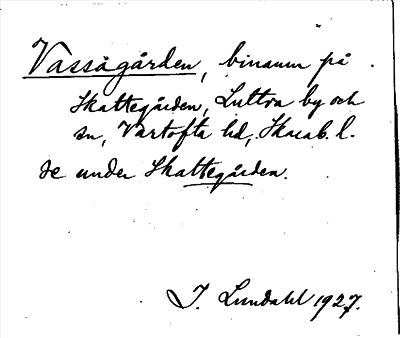 Vassågården, binamn på
Skattegården, Luttra by och
sn, Vartofta hd, Skarab. l.
se under Skattegården.
I. Lundahl 1927.